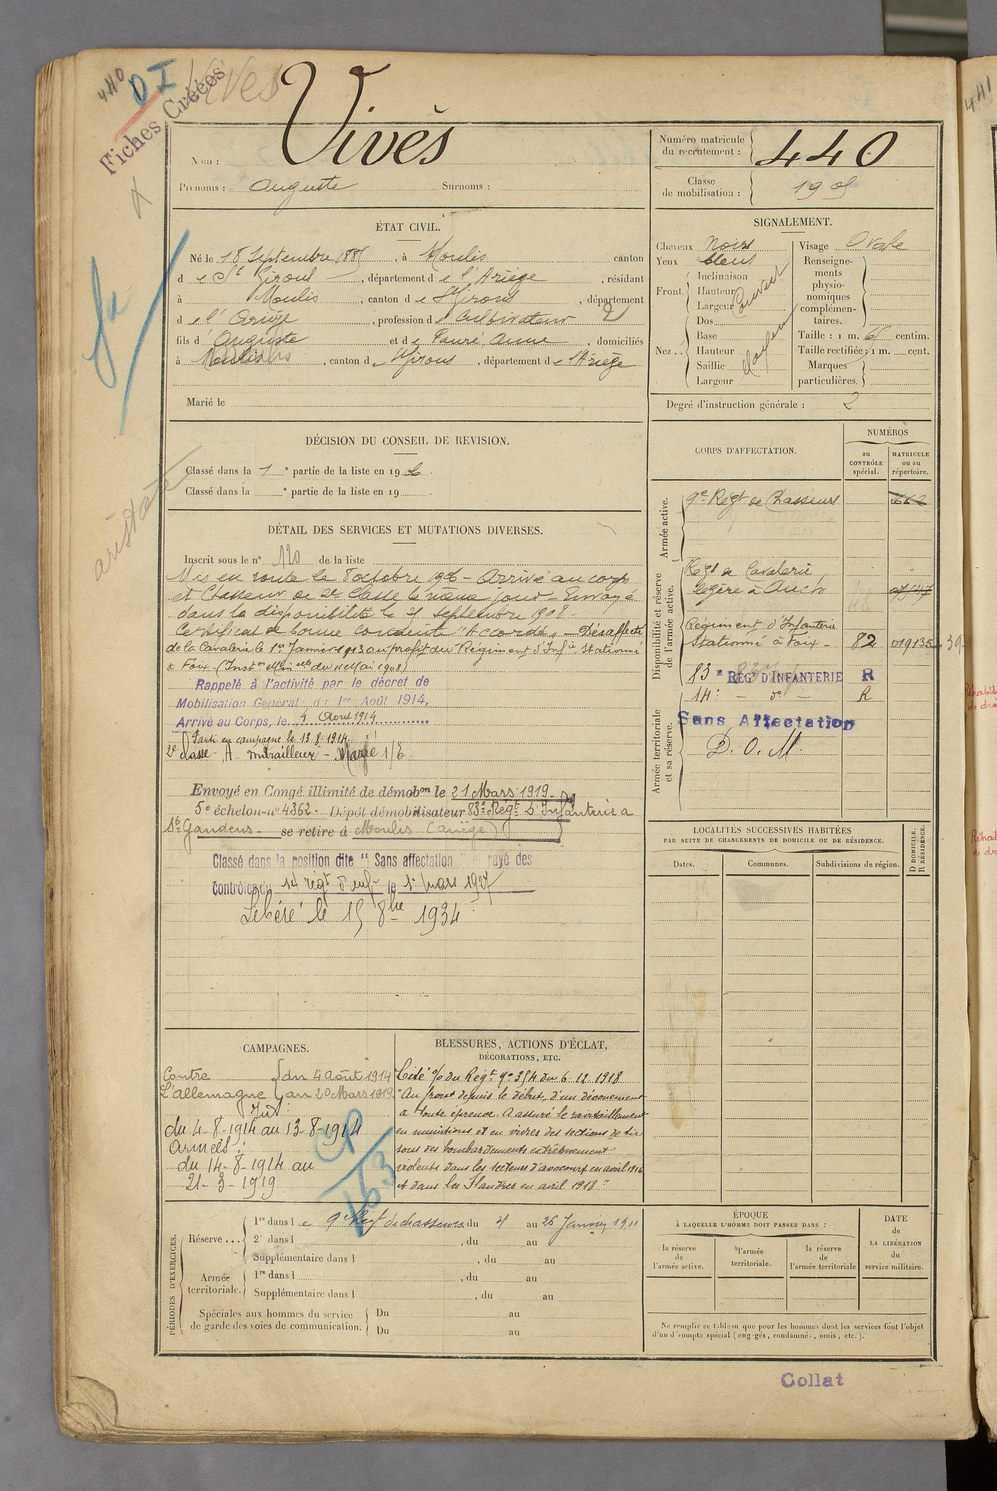 440
DI
Vivès
Fiches Créées
Nom : Vivès
Prénoms : Auguste Surnoms :
Numéro matricule du recrutement : 440
Classe de mobilisation : 1905
ÉTAT CIVIL.
Né le 18 Septembre 1885, à Moulis canton
de St Girons, département de l'Ariège, résidant
à Moulis, canton de St Girons, département
de l'Ariège, profession de Cultivateur
fils d'Auguste et de Faure, Anne, domiciliés
à Moulis, canton de St Girons, département de l'Ariège
Marié le
SIGNALEMENT.
Cheveux noirs
Yeux bleus
Front
Inclinaison
Hauteur
Largeur
Nez
Dos
Base
Hauteur
Saillie
Largeur
Visage Ovale
Renseignements physionomiques complémentaires.
Taille : 1 m. 65 centim.
Taille rectifiée : 1 m. cent.
Marques particulières.
Degré d'instruction générale : 2
DÉCISION DU CONSEIL DE REVISION.
Classé dans la 1e partie de la liste en 1906.
Classé dans la e partie de la liste en 19
DÉTAIL DES SERVICES ET MUTATIONS DIVERSES.
Inscrit sous le n° 120 de la liste
Mis en route le 8 octobre 1906 - Arrivé au corps
et Chasseur de 2e Classe le même jour - Envoyé
dans la disponibilité le 25 septembre 1908 -
Certificat de bonne conduite "Accordé" - Désaffecté
de la Cavalerie le 1er Janvier 1913 au profit du Régiment d'Infie Stationné
à Foix - (Instron Mlle du 11 Mai 1908)
Rappelé à l'activité par le décret de
Mobilisation Général du 1er Août 1914,
Arrivé au Corps, le 4 Août 1914
Parti en campagne le 13.8.1914.
2e classe - A - mitrailleur -
Envoyé en Congé illimité de démobon le 21 Mars 1919.
5e échelon - n° 4362 - Dépôt démobilisateur 83e Régt D'Infanterie à
St Gaudens - se retire à Moulis (Ariège)
Classé dans la position dite "Sans affectation rayé des
contrôles du 14 régt d'inf. le 1er mars 1927
Libéré le 15 8bre 1934
CORPS D'AFFECTATION.
NUMÉROS
au CONTRÔLE spécial.
MATRICULE ou au répertoire.
Armée active.
9e Régt de Chasseurs
Disponibilité et réserve de l'armée active.
Régt de Cavalerie
légère à Auch
Régiment d'Infanterie
Stationné à Foix - 82 019135
83e RÉGt D'INFANTERIE R
14e - do - R
Armée territoriale et sa réserve.
Sans Affectation
D. O. M.
LOCALITÉS SUCCESSIVES HABITÉES
PAR SUITE DE CHANGEMENTS DE DOMICILE OU DE RÉSIDENCE.
Dates.
Communes.
Subdivisions de région.
D DOMICILE. R RÉSIDENCE.
CAMPAGNES.
Contre du 4 août 1914
L'allemagne au 20 Mars 1919
Int
du 4-8-1914 au 13-8-1914
Armées :
du 14-8-1914 au
21-3-1919
CP
163
BLESSURES, ACTIONS D'ÉCLAT,
DÉCORATIONS, ETC.
Cité o/o du Régt no 354 du 6.12.1918
"Au front depuis le début, d'un dévouement
à toute épreuve. A assuré le ravitaillement
en munitions et en vivres des sections de tir
sous des bombardements extrêmement
violents dans les secteurs d'avocourt en avril 1916
et dans les Flandres en avril 1918"
PÉRIODES D'EXERCICES.
Réserve
1re dans le 9e Régt de chasseurs du 4 au 26 Janvier 1911
2e dans l , du au
Supplémentaire dans l , du au
Armée territoriale.
1re dans l , du au
Supplémentaire dans l , du au
Spéciales aux hommes du service de garde des voies de communication.
Du au
Du au
ÉPOQUE
À LAQUELLE L'HOMME DOIT PASSER DANS :
la réserve de l'armée active.
l'armée territoriale.
la réserve de l'armée territoriale
DATE
de
LA LIBÉRATION
du
service militaire.
Ne remplir ce tableau que pour les hommes dont les services font l'objet
d'un décompte spécial (engagés, condamnés, omis, etc.).
Collat
441